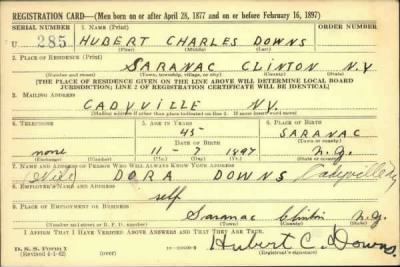 REGISTRATION CARD—(Men born on or after April 28, 1877 and on or before February 16, 1897)
SERIAL NUMBER 1. NAME (Print) ORDER NUMBER
U 285 HUBERT CHARLES DOWNS
(First) (Middle) (Last)
2. PLACE OF RESIDENCE (Print)
SARANAC CLINTON N.Y
(Number and street) (Town, township, village, or city) (County) (State)
[THE PLACE OF RESIDENCE GIVEN ON THE LINE ABOVE WILL DETERMINE LOCAL BOARD
JURISDICTION; LINE 2 OF REGISTRATION CERTIFICATE WILL BE IDENTICAL]
3. MAILING ADDRESS
CADYVILLE NY.
[Mailing address if other than place indicated on line 2. If same insert word same]
4. TELEPHONE 5. AGE IN YEARS 6. PLACE OF BIRTH
45 SARANAC
DATE OF BIRTH (Town or county)
none 11 - 7 1897 N.Y.
(Exchange) (Number) (Mo.) (Day) (Yr.) (State or country)
7. NAME AND ADDRESS OF PERSON WHO WILL ALWAYS KNOW YOUR ADDRESS
(Wife) DORA DOWNS Cadyville Ny
8. EMPLOYER'S NAME AND ADDRESS
self
9. PLACE OF EMPLOYMENT OR BUSINESS
Saranac Clinton N.Y.
(Number and street or R. F. D. number) (Town) (County) (State)
I AFFIRM THAT I HAVE VERIFIED ABOVE ANSWERS AND THAT THEY ARE TRUE.
D. S. S. Form 1
(Revised 4-1-42) (over) Hubert C. Downs
(Registrant's signature)